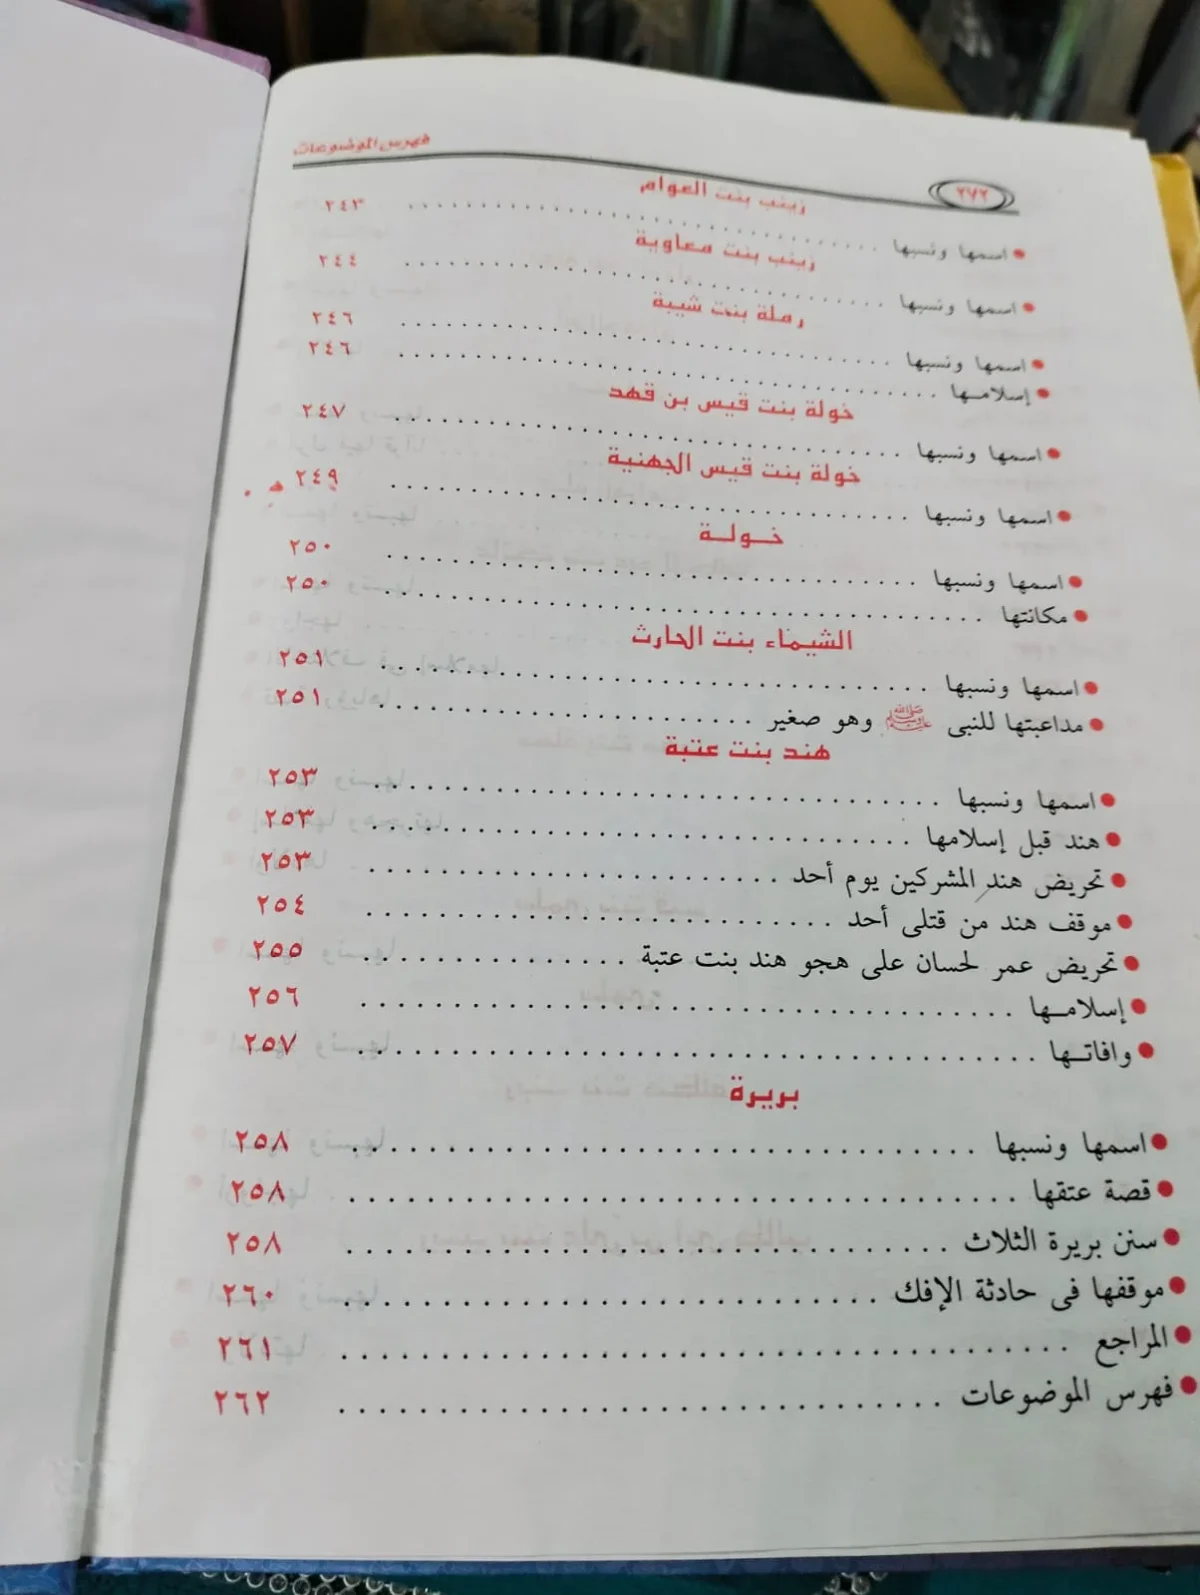 ٢٧٢ فهرس الموضوعات
زينب بنت العوام
● اسمها ونسبها ........ ٢٤٣
زينب بنت معاوية
● اسمها ونسبها ........ ٢٤٤
رملة بنت شيبة
● اسمها ونسبها ........ ٢٤٦
● إسلامـها ........ ٢٤٦
خولة بنت قيس بن قهد
● اسمها ونسبها ........ ٢٤٧
خولة بنت قيس الجهنية
● اسمها ونسبها ........ ٢٤٩
خـولـة
● اسمها ونسبها ........ ٢٥٠
● مكانتها ........ ٢٥٠
الشيماء بنت الحارث
● اسمها ونسبها ........ ٢٥١
● مداعبتها للنبى ﷺ وهو صغير ........ ٢٥١
هند بنت عتبة
● اسمها ونسبها ........ ٢٥٣
● هند قبل إسلامها ........ ٢٥٣
● تحريض هند المشركين يوم أحد ........ ٢٥٣
● موقف هند من قتلى أحد ........ ٢٥٤
● تحريض عمر لحسان على هجو هند بنت عتبة ........ ٢٥٥
● إسلامـها ........ ٢٥٦
● وافاتـها ........ ٢٥٧
بريرة
● اسمها ونسبها ........ ٢٥٨
● قصة عتقها ........ ٢٥٨
● سنن بريرة الثلاث ........ ٢٥٨
● موقفها فى حادثة الإفك ........ ٢٦٠
● المراجع ........ ٢٦١
● فهرس الموضوعات ........ ٢٦٢